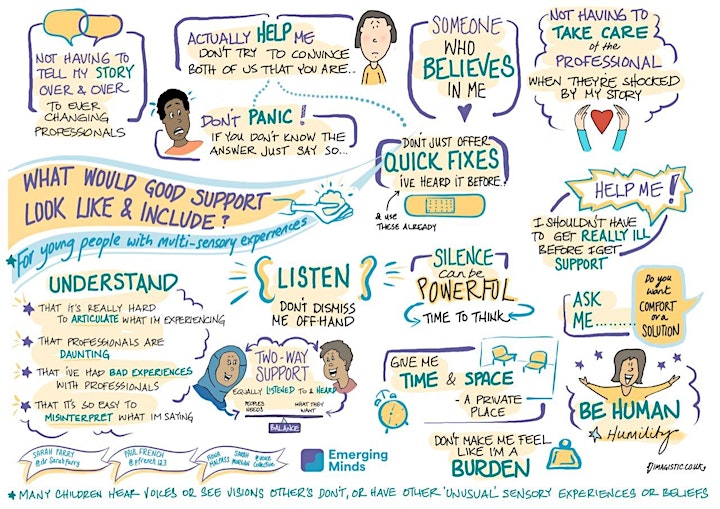 NOT HAVING TO
TELL MY STORY
OVER & OVER
TO EVER
CHANGING
PROFESSIONALS
ACTUALLY HELP ME
DON'T TRY TO CONVINCE
BOTH OF US THAT YOU ARE..
DON'T PANIC!
IF YOU DON'T KNOW THE
ANSWER JUST SAY SO...
SOMEONE
WHO
BELIEVES
IN ME
NOT HAVING TO
TAKE CARE
of the
PROFESSIONAL
WHEN THEY'RE SHOCKED
BY MY STORY
WHAT WOULD GOOD SUPPORT
LOOK LIKE & INCLUDE?
*For young people with multi-sensory experiences
DON'T JUST OFFER
QUICK FIXES
I'VE HEARD IT BEFORE..
& USE
THESE ALREADY
HELP ME!
I SHOULDN'T HAVE
TO GET REALLY ILL
BEFORE I GET
SUPPORT
UNDERSTAND
THAT IT'S REALLY HARD
TO ARTICULATE WHAT I'M EXPERIENCING
THAT PROFESSIONALS ARE
DAUNTING
THAT I'VE HAD BAD EXPERIENCES
WITH PROFESSIONALS
THAT IT'S SO EASY TO
MISINTERPRET WHAT I'M SAYING
LISTEN
DON'T DISMISS
ME OFF-HAND
SILENCE
can be
POWERFUL
TIME TO THINK
ASK
ME........
Do you
want
COMFORT
or a
SOLUTION
TWO-WAY
SUPPORT
EQUALLY LISTENED TO & HEARD
PEOPLES
NEEDS
WHAT THEY
WANT
BALANCE
GIVE ME
TIME & SPACE
- A PRIVATE
PLACE
BE HUMAN
Humility
DON'T MAKE ME FEEL
LIKE I'M A
BURDEN
SARAH PARRY
@dr Sarahparry
PAUL FRENCH
@pfrench123
FIONA
MALPASS
SARAH
@voice
Collective
Emerging
Minds
IMAGISTIC.CO.UK
* MANY CHILDREN HEAR VOICES OR SEE VISIONS OTHER'S DON'T, OR HAVE OTHER 'UNUSUAL' SENSORY EXPERIENCES OR BELIEFS